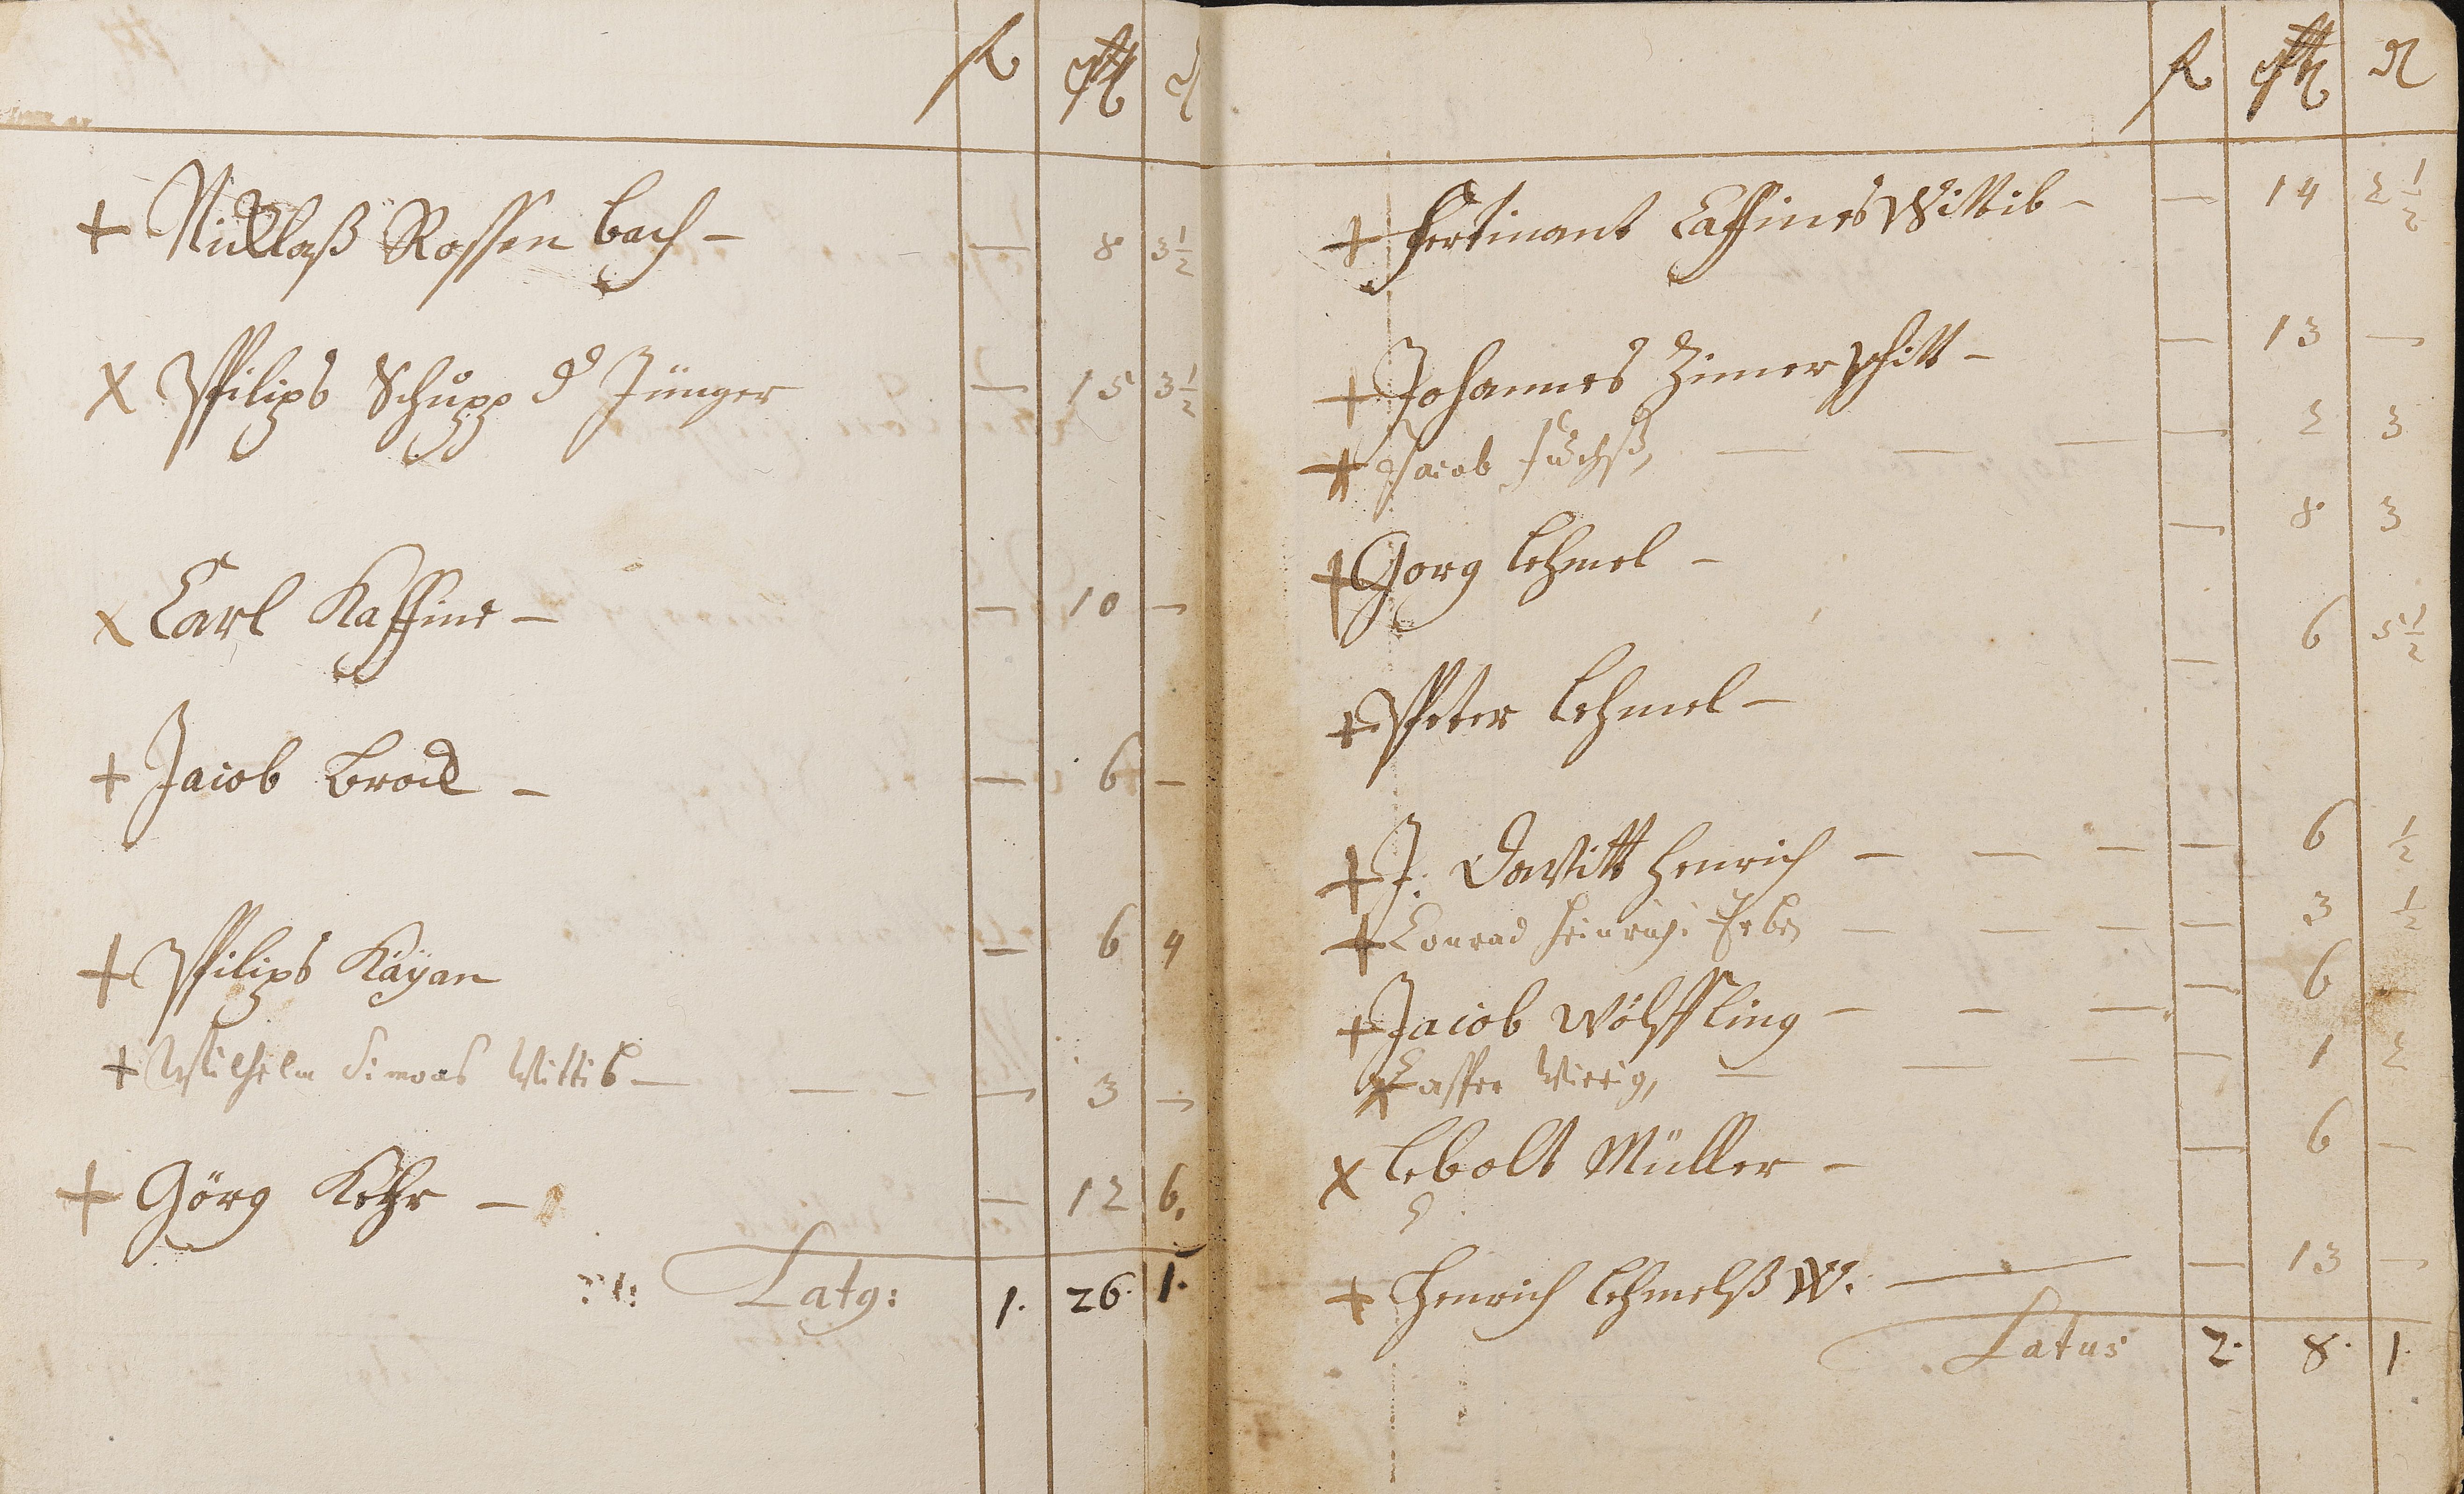 fl
+ Nicklaß Rossen bach – — 8 3½
x Philips Schupp d Jünger — 15 3½
x Carl Kaffine – — 10 —
+ Jacob Brod – — 6 —
+ Philips Käÿan — 6 4
+ Wilhelm Simons Wittib — — — — 3 —
+ Görg Kehr – — 12 6.
Latg: 1. 26. 1.
fl
+ Fertinant Caffines Wittib – — 14 2½
+ Johannes Zimerschitt – — 13 —
+ Jacob Fuchß, — — — — 2 3
+ Gorg Lehmel – — 8 3
+ Peter Lehmel – — 6 5½
+ J. Davitt Henrich – — — — 6 ½
+ Conrad Heinrich: Erben — — — — 3 ½
+ Jacob Wölffling – — — — 6 —
x Casper Vierig, — — — — 1 2
x Lebolt Müller – — 6 —
+ Henrich Lehmelß W. — — 13 —
Latus 2. 8. 1.